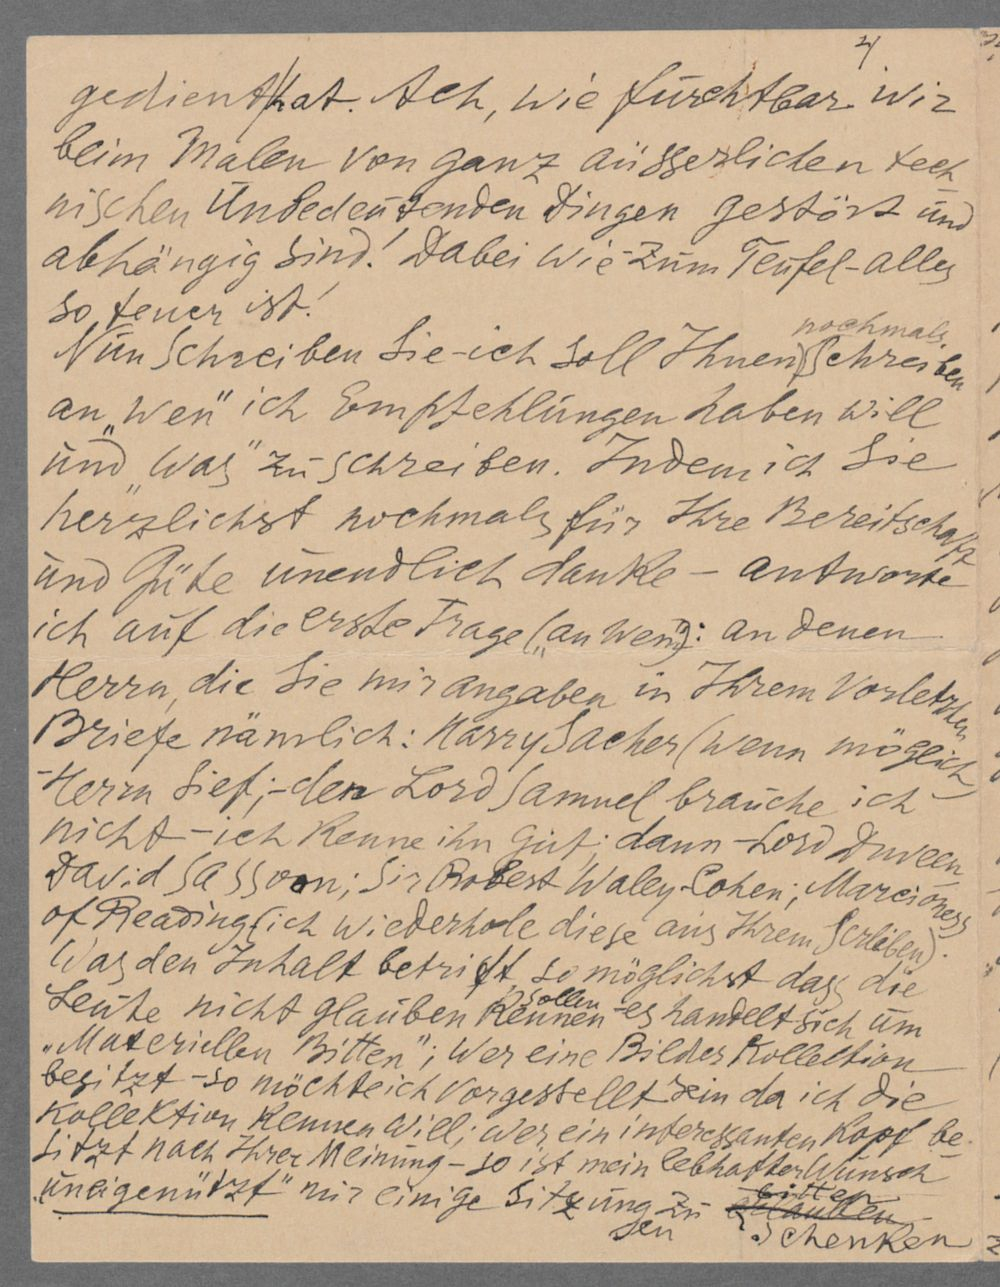 2/
gedient hat. Ach, wie furchtbar wir
beim Malen von ganz äusserlichen tech-
nischen Unbedeutenden Dingen gestört und
abhängig sind! Dabei wie-zum Teufel-alles
so teuer ist!
nochmals
Nun Schreiben Sie-ich soll Ihnen Schreiben
an „wen" ich Empfehlungen haben will
und „was" zu schreiben. Indem ich Sie
herzlichst nochmals für Ihre Bereitschaft
und Güte unendlich danke – antworte
ich auf die erste Frage („an wen"): an denen
Herrn, die Sie mir angaben in Ihrem vorletzten
Briefe nämlich: Harry Sacher (wenn möglich)
-Herrn Sief;-den Lord Samuel brauche ich
nicht-ich kenne ihn gut; dann-Lord Duveen,
David Sassoon; Sir Robert Waley-Cohen; Marcioness
of Reading (ich wiederhole diese aus Ihrem Screiben).
Was den Inhalt betrift, so möglichst dass die
Leute nicht glauben sollen
können-es handelt sich um
„Materiellen Bitten"; wer eine Bilder Kollektion
besitzt-so möchte ich vorgestellt sein da ich die
Kollektion kennen will; wer ein interessanten Kopf be-
sitzt nach Ihrer Meinung-so ist mein lebhafter Wunsch
„uneigenützt" mir einige Sitzungen zu
bitten
schenken